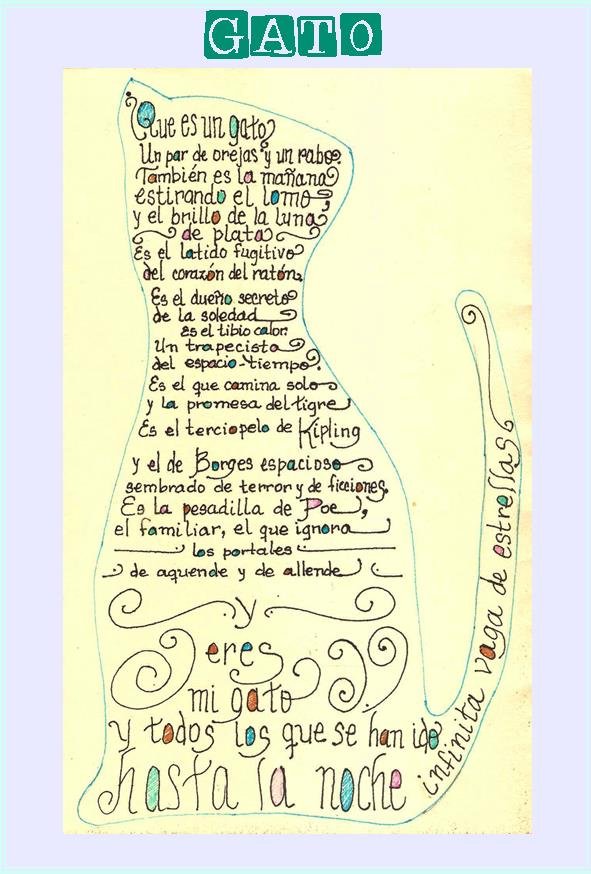 GATO
Que es un gato
Un par de orejas y un rabo.
También es la mañana
estirando el lomo,
y el brillo de la luna
de plata
Es el latido fugitivo
del corazón del ratón,
Es el dueño secreto
de la soledad
es el tibio calor.
Un trapecista
del espacio-tiempo.
Es el que camina solo
y la promesa del tigre
Es el terciopelo de Kipling
y el de Borges espacioso
sembrado de terror y de ficciones.
Es la pesadilla de Poe,
el familiar, el que ignora
los portales
de aquende y de allende
y
eres
mi gato
y todos los que se han ido
hasta la noche
infinita vaga de estrellas